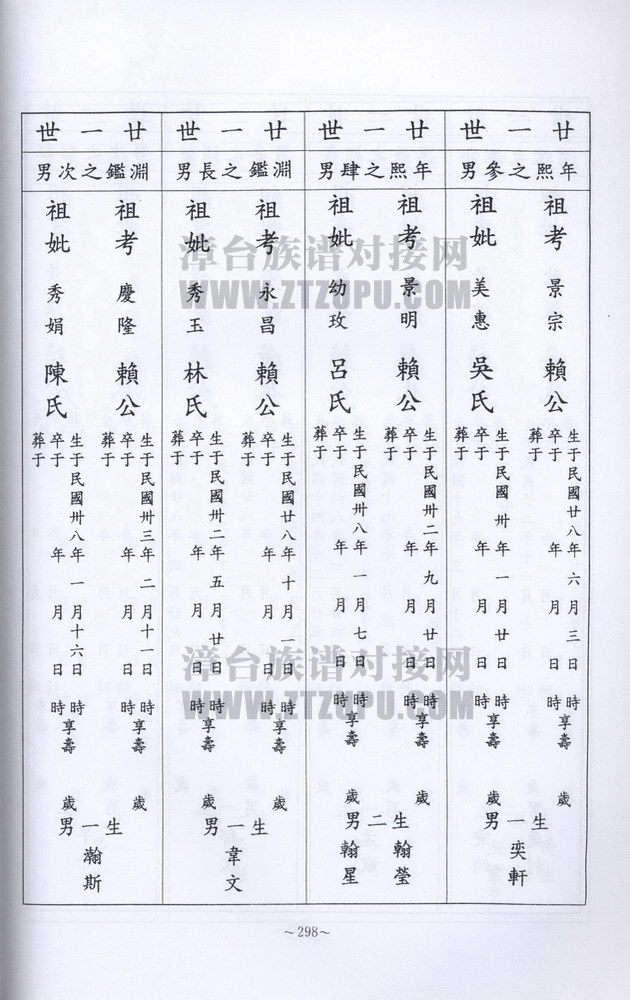 廿一世
年熙之參男
祖考 景宗 賴公
生于民國廿八年 六月三日 時享壽 歲
卒于 年 月 日
葬于
祖妣 美惠 吳氏
生于民國卅年 一月廿日 時享壽 歲
卒于 年 月 日
葬于
生一男
奕軒
廿一世
年熙之肆男
祖考 景明 賴公
生于民國卅二年 九月廿日 時享壽 歲
卒于 年 月 日
葬于
祖妣 幼玫 呂氏
生于民國卅八年 一月七日 時享壽 歲
卒于 年 月 日
葬于
生二男
翰瑩
翰星
廿一世
淵鑑之長男
祖考 永昌 賴公
生于民國廿八年 十月一日 時享壽 歲
卒于 年 月 日
葬于
祖妣 秀玉 林氏
生于民國卅二年 五月廿日 時享壽 歲
卒于 年 月 日
葬于
生一男
韋文
廿一世
淵鑑之次男
祖考 慶隆 賴公
生于民國卅三年 二月十一日 時享壽 歲
卒于 年 月 日
葬于
祖妣 秀娟 陳氏
生于民國卅八年 一月十六日 時享壽 歲
卒于 年 月 日
葬于
生一男
瀚斯
～298～
漳台族谱对接网
WWW.ZTZUPU.COM
漳台族谱对接网
WWW.ZTZUPU.COM